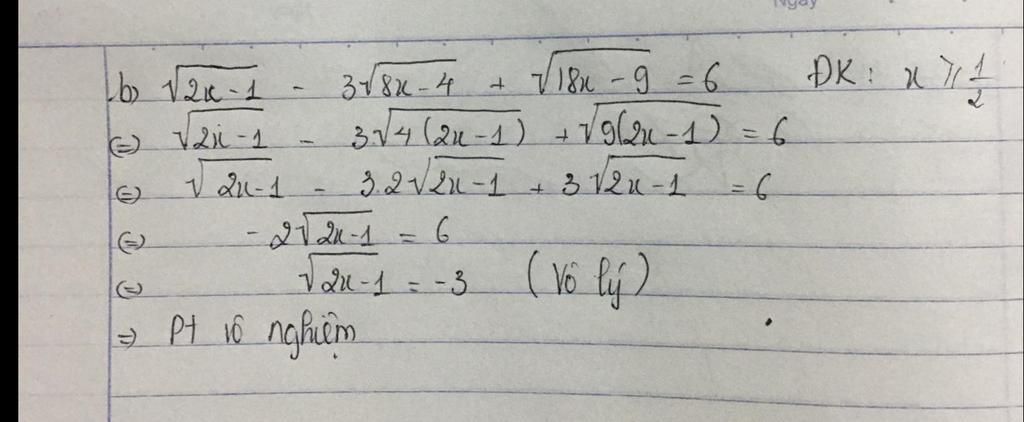 Ngày
b) √(2x-1) - 3√(8x-4) + √(18x-9) = 6 ĐK: x ⩾ 1/2
(=) √(2x-1) - 3√(4(2x-1)) + √(9(2x-1)) = 6
(=) √(2x-1) - 3.2√(2x-1) + 3√(2x-1) = 6
(=) -2√(2x-1) = 6
(=) √(2x-1) = -3 (Vô lý)
=) Pt vô nghiệm